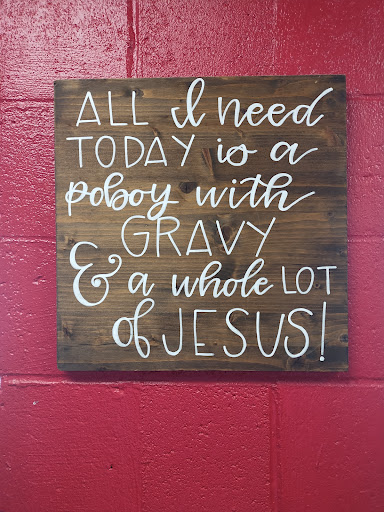 ALL I need
TODAY is a
poboy with
GRAVY
& a whole LOT
of JESUS!